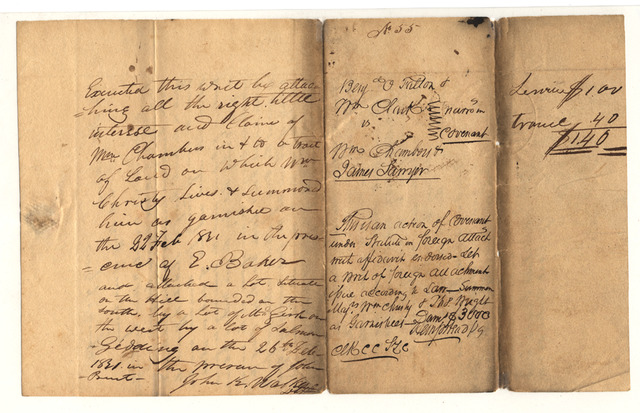 Executed this writ by attac
hing all the right, title
interest and claim of
Wm Chambers in & to a tract
of Land on which Wm
Christy Lives & Summond
him as garnishee on
the 22 Feb 1821 in the pres-
=ence of E. Baker
and attached a Lot Situate
on the Hill bounded on the
South, by a Lot of on
the west by a Lot of
Gidding on the 26th Feb.
1821 in the presence of John
Brent-
John K.
No 55
Benj O Fallon &
Wm Clark narr in
vs Covenant
Wm Chambers &
James
This is an action of Covenant
under Statute in foreign attach
ment affidavit endorsed - Let
a writ of foreign attachment
issue according to Law - Summon
Majr Wm Christy & Thos Wright
as Garnishees - Dam $3000
Clk CC
Service $1 00
travel 40
$1.40